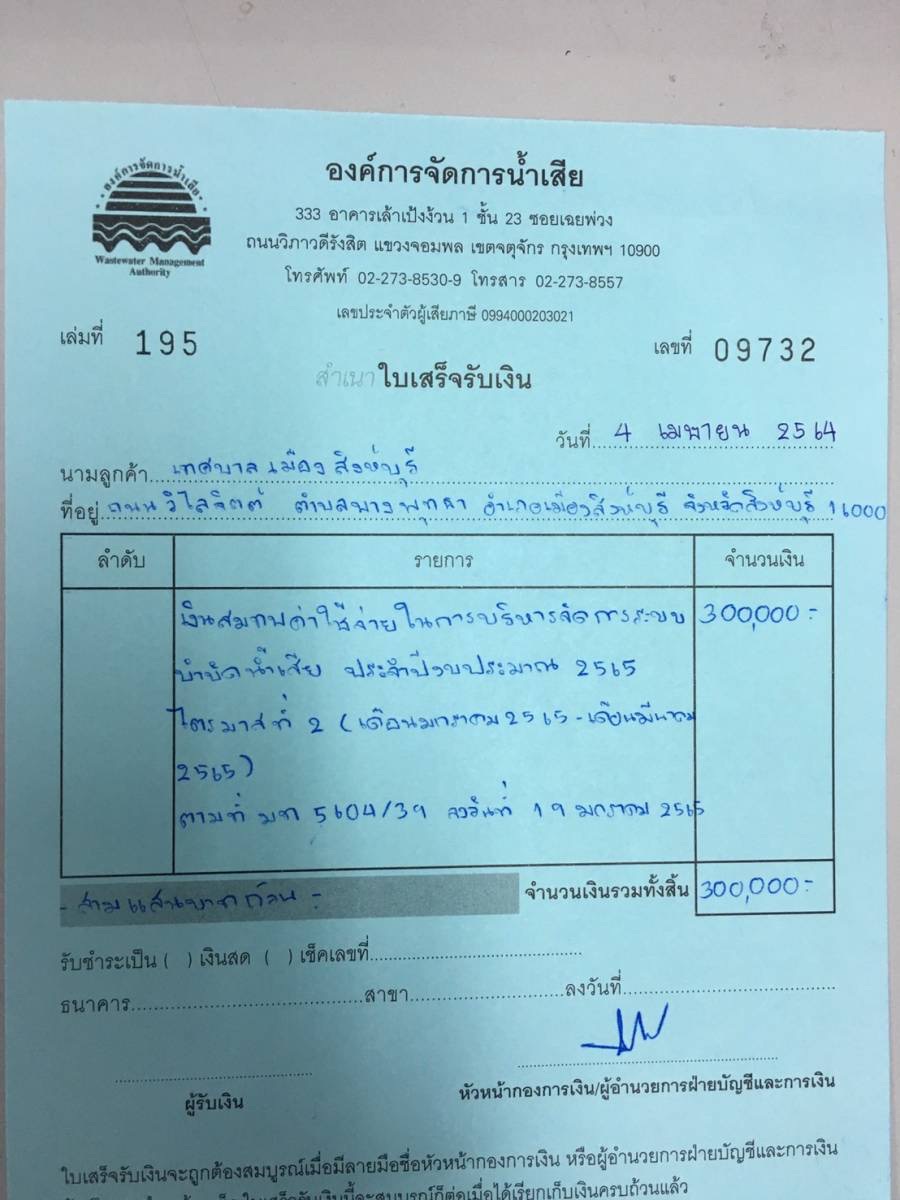 องค์การจัดการน้ำเสีย
Wastewater Management
Authority
องค์การจัดการน้ำเสีย
333 อาคารเล้าเป้งง้วน 1 ชั้น 23 ซอยเฉยพ่วง
ถนนวิภาวดีรังสิต แขวงจอมพล เขตจตุจักร กรุงเทพฯ 10900
โทรศัพท์ 02-273-8530-9 โทรสาร 02-273-8557
เลขประจำตัวผู้เสียภาษี 0994000203021
เล่มที่ 195 เลขที่ 09732
สำเนา ใบเสร็จรับเงิน
วันที่ 4 เมษายน 2564
นามลูกค้า เทศบาลเมืองสิงห์บุรี
ที่อยู่ ถนนวิไลจิตต์ ตำบลบางพุทรา อำเภอเมืองสิงห์บุรี จังหวัดสิงห์บุรี 16000
ลำดับ รายการ จำนวนเงิน
เงินสมทบค่าใช้จ่ายในการบริหารจัดการระบบ 300,000.-
บำบัดน้ำเสีย ประจำปีงบประมาณ 2565
ไตรมาสที่ 2 (เดือนมกราคม 2565 - เดือนมีนาคม
2565)
ตามที่ มท 5604/39 ลงวันที่ 19 มกราคม 2565
- สามแสนบาทถ้วน - จำนวนเงินรวมทั้งสิ้น 300,000.-
รับชำระเป็น ( ) เงินสด ( ) เช็คเลขที่
ธนาคาร สาขา ลงวันที่
ผู้รับเงิน หัวหน้ากองการเงิน/ผู้อำนวยการฝ่ายบัญชีและการเงิน
ใบเสร็จรับเงินจะถูกต้องสมบูรณ์เมื่อมีลายมือชื่อหัวหน้ากองการเงิน หรือผู้อำนวยการฝ่ายบัญชีและการเงิน
ใบเสร็จรับเงินนี้จะสมบูรณ์ก็ต่อเมื่อได้เรียกเก็บเงินครบถ้วนแล้ว